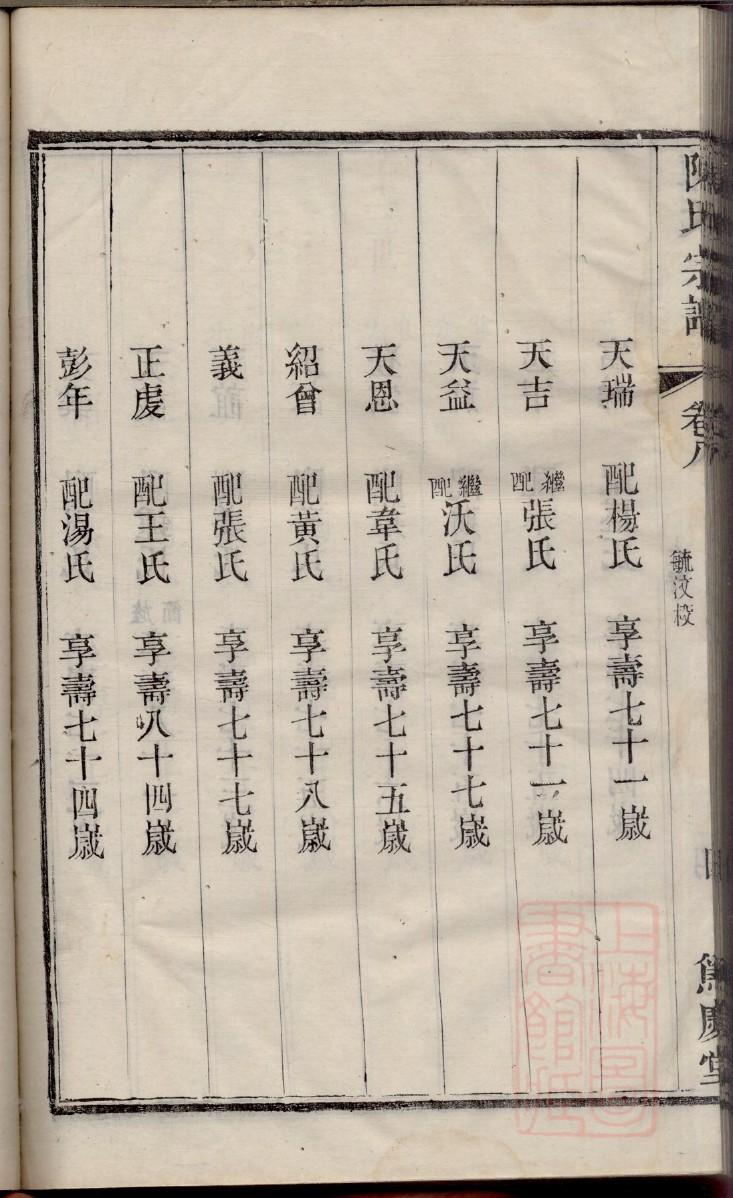 陳氏宗譜
毓汶校
天瑞 配楊氏 享壽七十一嵗
天吉 繼配張氏 享壽七十一嵗
天益 繼配沃氏 享壽七十七嵗
天恩 配韋氏 享壽七十五嵗
紹曾 配黃氏 享壽七十八嵗
義 配張氏 享壽七十七嵗
正虔 配王氏 享壽八十四嵗
彭年 配湯氏 享壽七十四嵗
上海圖書館藏